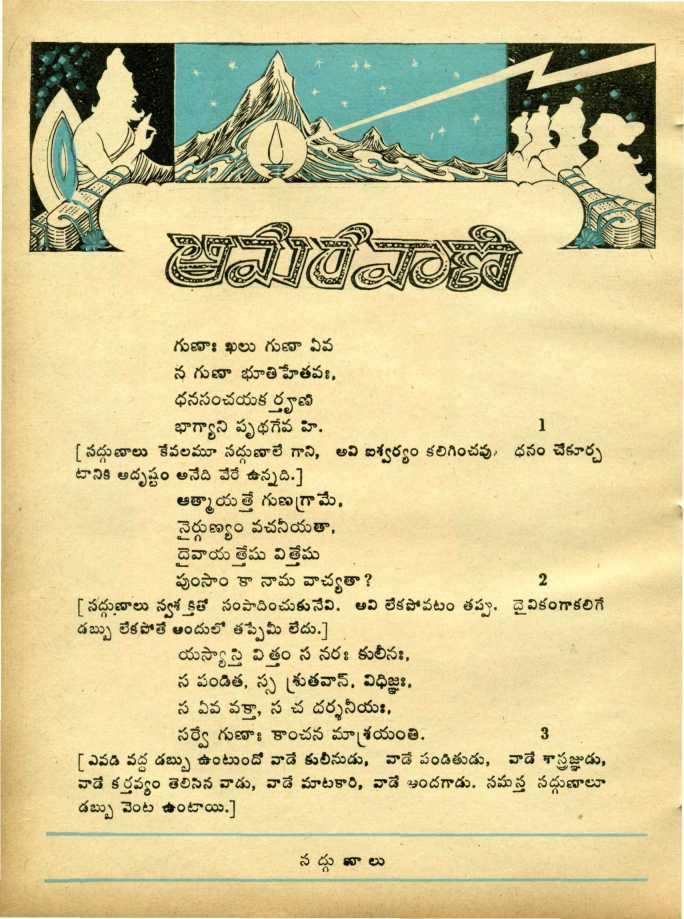 అమరవాణి
గుణాః ఖలు గుణా ఏవ
న గుణా భూతిహేతవః,
ధనసంచయకర్తౄణి
భాగ్యాని పృథగేవ హి. 1
[ సద్గుణాలు కేవలమూ సద్గుణాలే గాని, అవి ఐశ్వర్యం కలిగించవు, ధనం చేకూర్చ
టానికి అదృష్టం అనేది వేరే ఉన్నది.]
ఆత్మాయత్తే గుణగ్రామే,
నైర్గుణ్యం వచనీయతా,
దైవాయత్తేషు విత్తేషు
పుంసాం కా నామ వాచ్యతా? 2
[ సద్గుణాలు స్వశక్తితో సంపాదించుకునేవి. అవి లేకపోవటం తప్పు. దైవికంగాకలిగే
డబ్బు లేకపోతే అందులో తప్పేమీ లేదు.]
యస్యాస్తి విత్తం స నరః కులీనః,
స పండిత, స్స శ్రుతవాన్, విధిజ్ఞః,
స ఏవ వక్తా, స చ దర్శనీయః,
సర్వే గుణాః కాంచన మాశ్రయంతి. 3
[ ఎవడి వద్ద డబ్బు ఉంటుందో వాడే కులీనుడు, వాడే పండితుడు, వాడే శాస్త్రజ్ఞుడు,
వాడే కర్తవ్యం తెలిసిన వాడు, వాడే మాటకారి, వాడే అందగాడు. సమస్త సద్గుణాలూ
డబ్బు వెంట ఉంటాయి.]
సద్గుణాలు